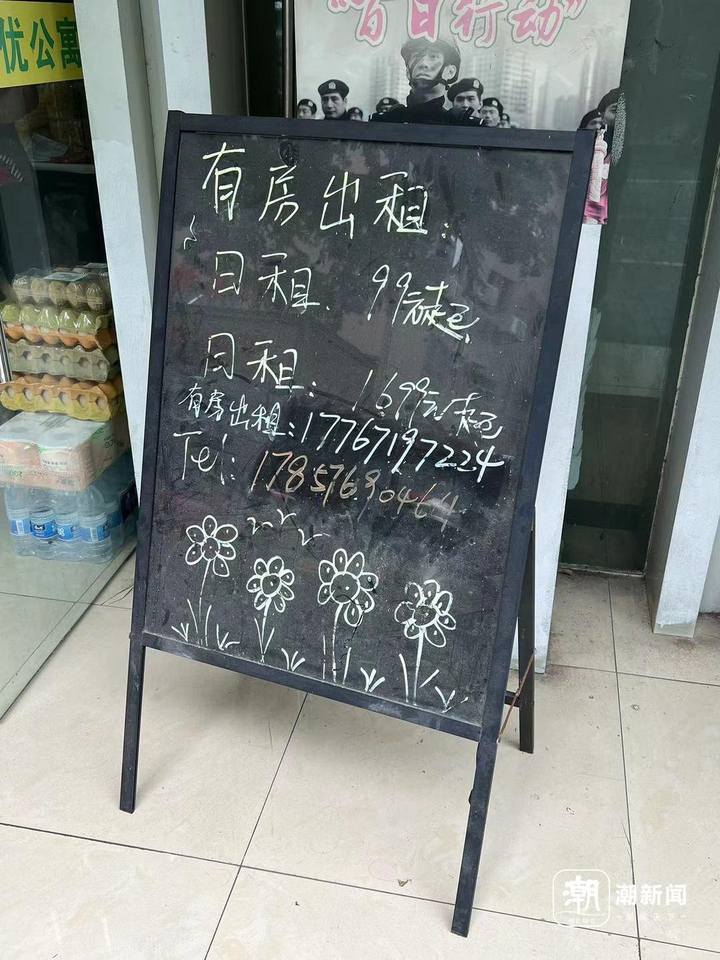 "百日行动"
优公寓
有房出租.
日租. 99元起
月租: 1699元起
有房出租:17767197224
Tel: 17857690464
潮 潮新闻